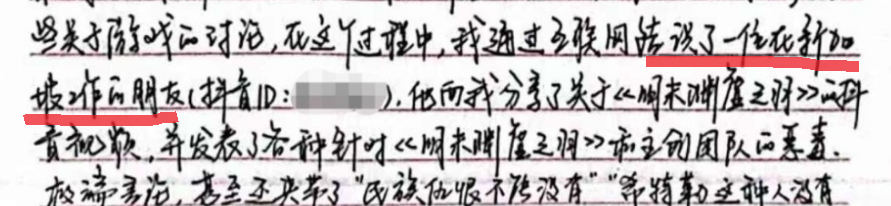 些关于游戏的讨论,在这个过程中,我通过互联网结识了一位在新加
坡工作的朋友(抖音ID: ),他向我分享了关于《明末渊虚之羽》的抖
音视频,并发表了各种针对《明末渊虚之羽》和主创团队的恶毒、
放言论,甚至还夹带了“民族仇恨不能没有”“希特勒这种人没有